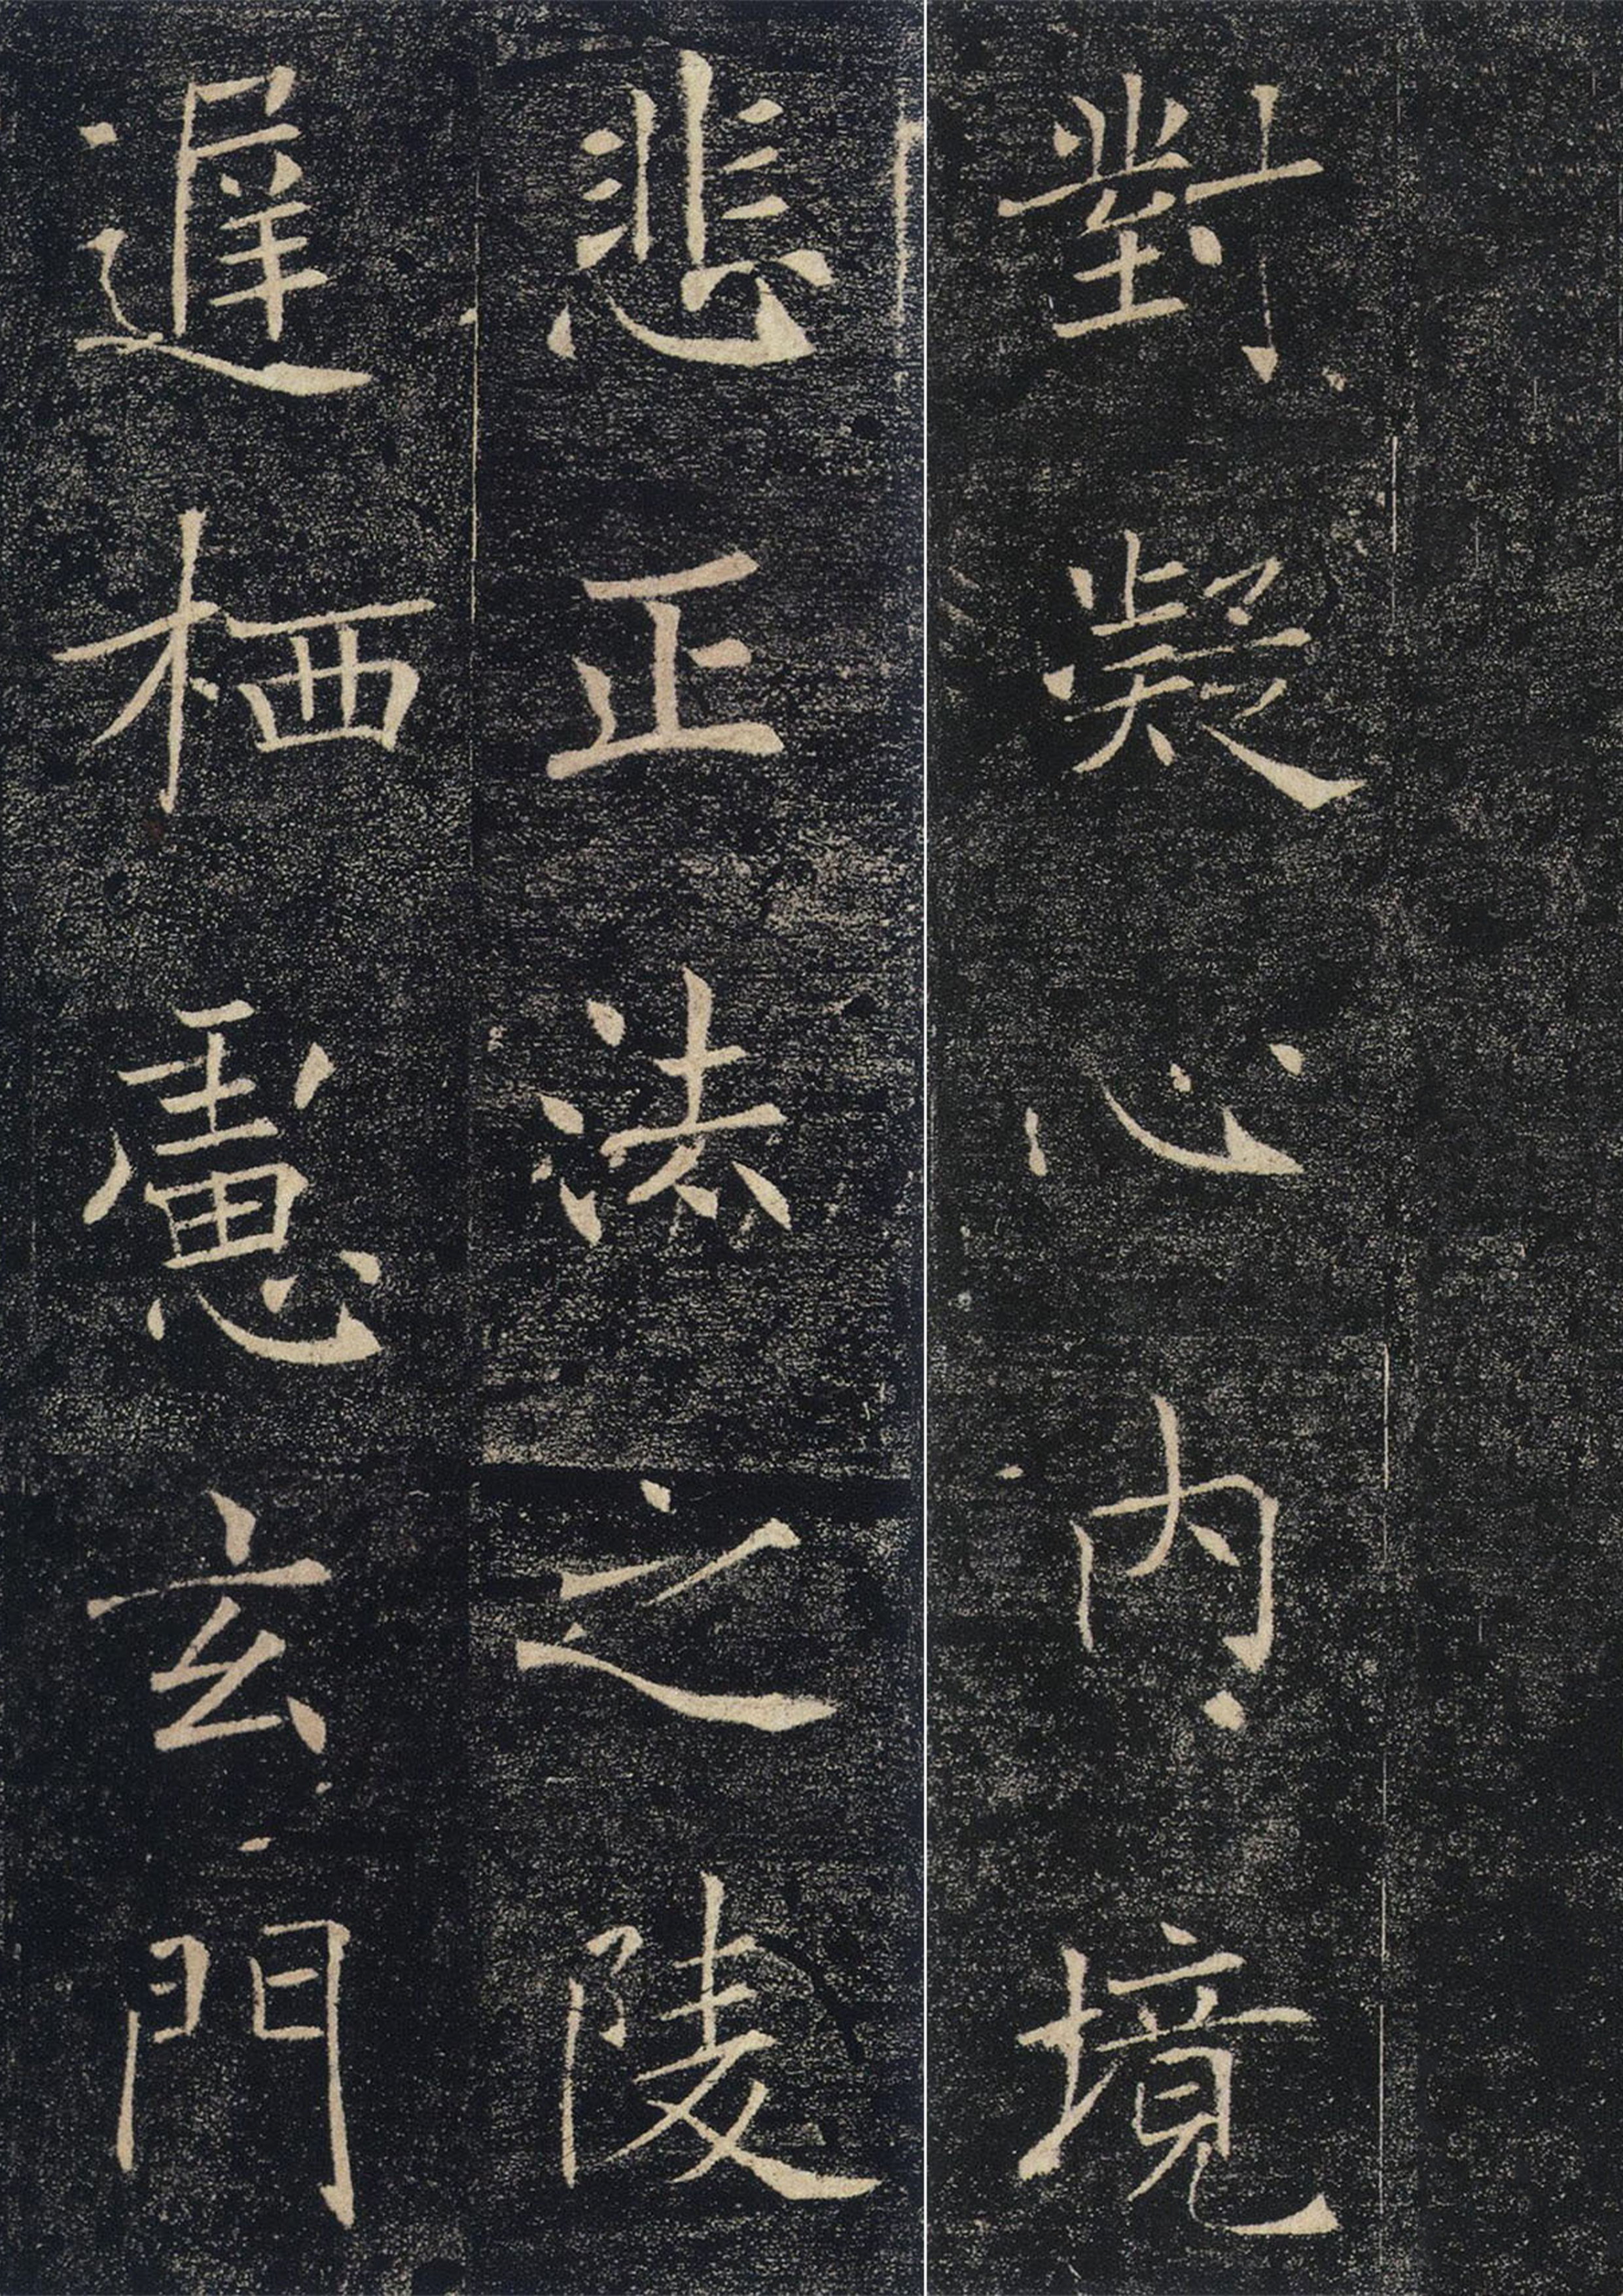 對凝心内境
悲正法之陵
遲栖慮玄門